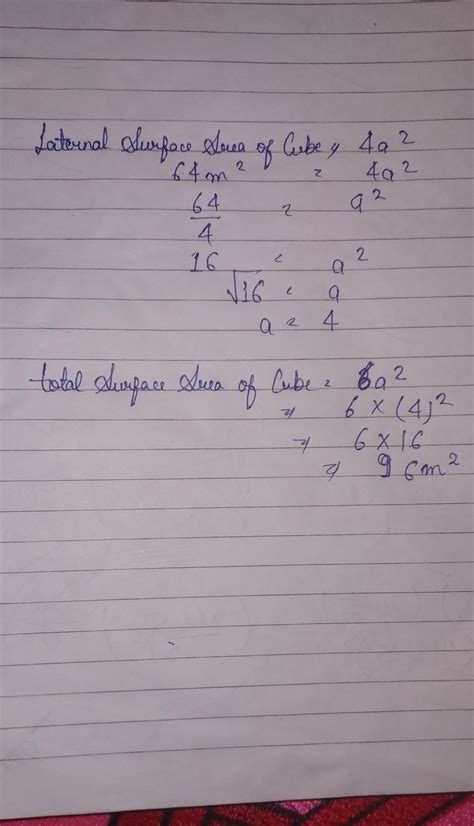 Laternal Surface Area of Cube = 4a²
64m² = 4a²
64/4 = a²
16 = a²
√16 = a
a = 4
total Surface Area of Cube = 6a²
⇒ 6 × (4)²
⇒ 6 × 16
⇒ 96m²